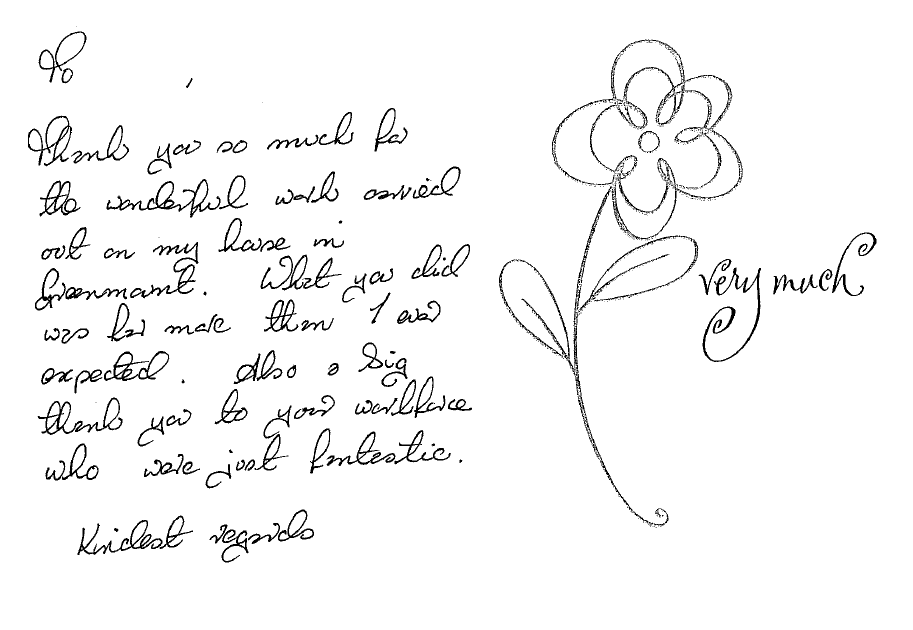 To ,
Thank you so much for
the wonderful work carried
out on my house in
Greenmount. What you did
was far more than I ever
expected. Also a big
thank you to your workforce
who were just fantastic.
Kindest regards
very much